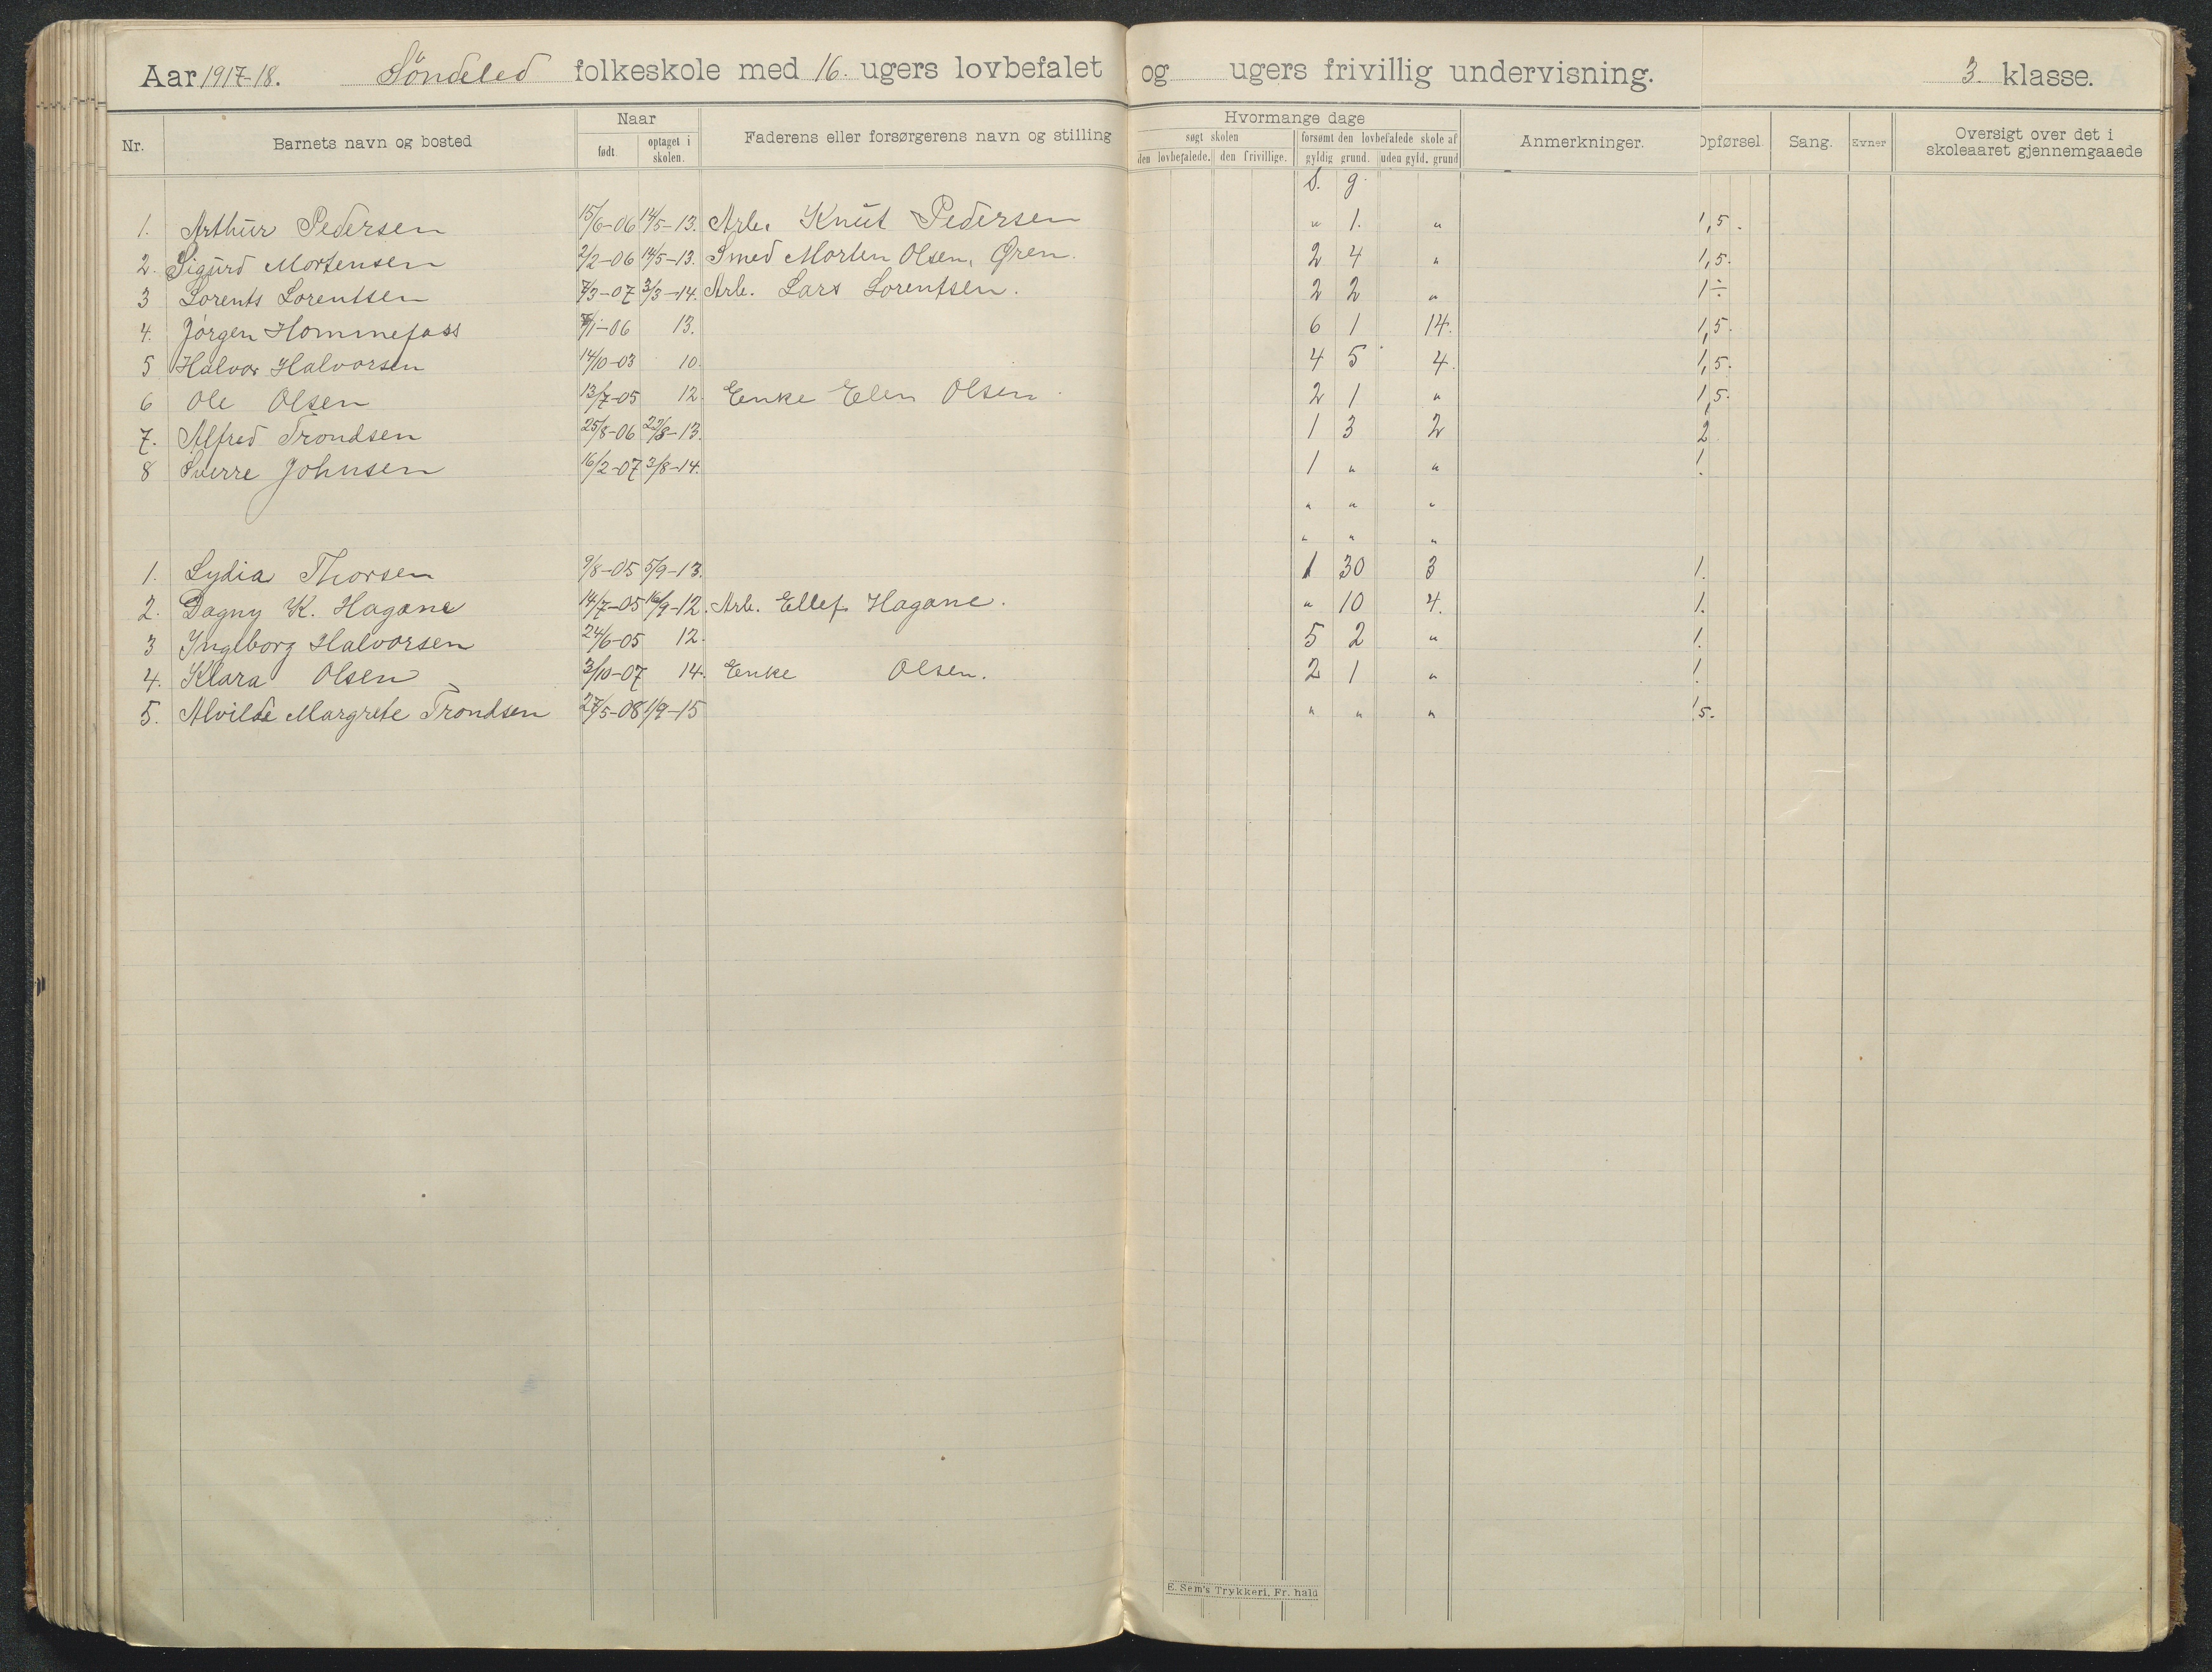 Aar 1917-18. Söndeled folkeskole med 16. ugers lovbefalet og ugers frivillig undervisning. 3. klasse.
Nr. Barnets navn og bosted Naar født. optaget i skolen. Faderens eller forsørgerens navn og stilling Hvormange dage søgt skolen den lovbefalede. den frivillige. forsømt den lovbefalede skole af gyldig grund. uden gyld. grund Anmerkninger. Opførsel. Sang. Evner Oversigt over det i skoleaaret gjennemgaaede
S. g.
1. Arthur Pedersen 15/6-06 14/5-13. Arb. Knut Pedersen " 1. " 1,5.
2. Sigurd Mortensen 2/2-06 14/5-13. Smed Morten Olsen, Gren. 2 4 " 1,5.
3 Lorents Lorentsen 7/3-07 3/3-14. Arb. Lars Lorentsen. 2 2 " 1÷
4. Jörgen Hommefoss /1-06 13. 6 1 14. 1,5.
5 Halvor Halvorsen 14/10-03 10. 4 5 4. 1,5.
6 Ole Olsen 13/7-05 12. Enke Elen Olsen. 2 1 " 1,5.
7. Alfred Trondsen 25/8-06 22/8-13. 1 3 2 2
8 Sverre Johnsen 16/2-07 3/8-14. 1 " " 1.
" " "
" " "
1. Lydia Thorsen 9/8-05 5/9-13. 1 30 3 1.
2. Dagny K. Hagane 14/7-05 16/9-12. Arb. Ellef Hagane. " 10 4. 1.
3 Ingeborg Halvorsen 24/6-05 12. 5 2 " 1.
4. Klara Olsen 3/10-07 14. Enke Olsen. 2 1 " 1.
5. Alvilde Margrete Trondsen 27/5-08 1/9-15 " " " 1,5.
E. Sem's Trykkeri, Fr. hald